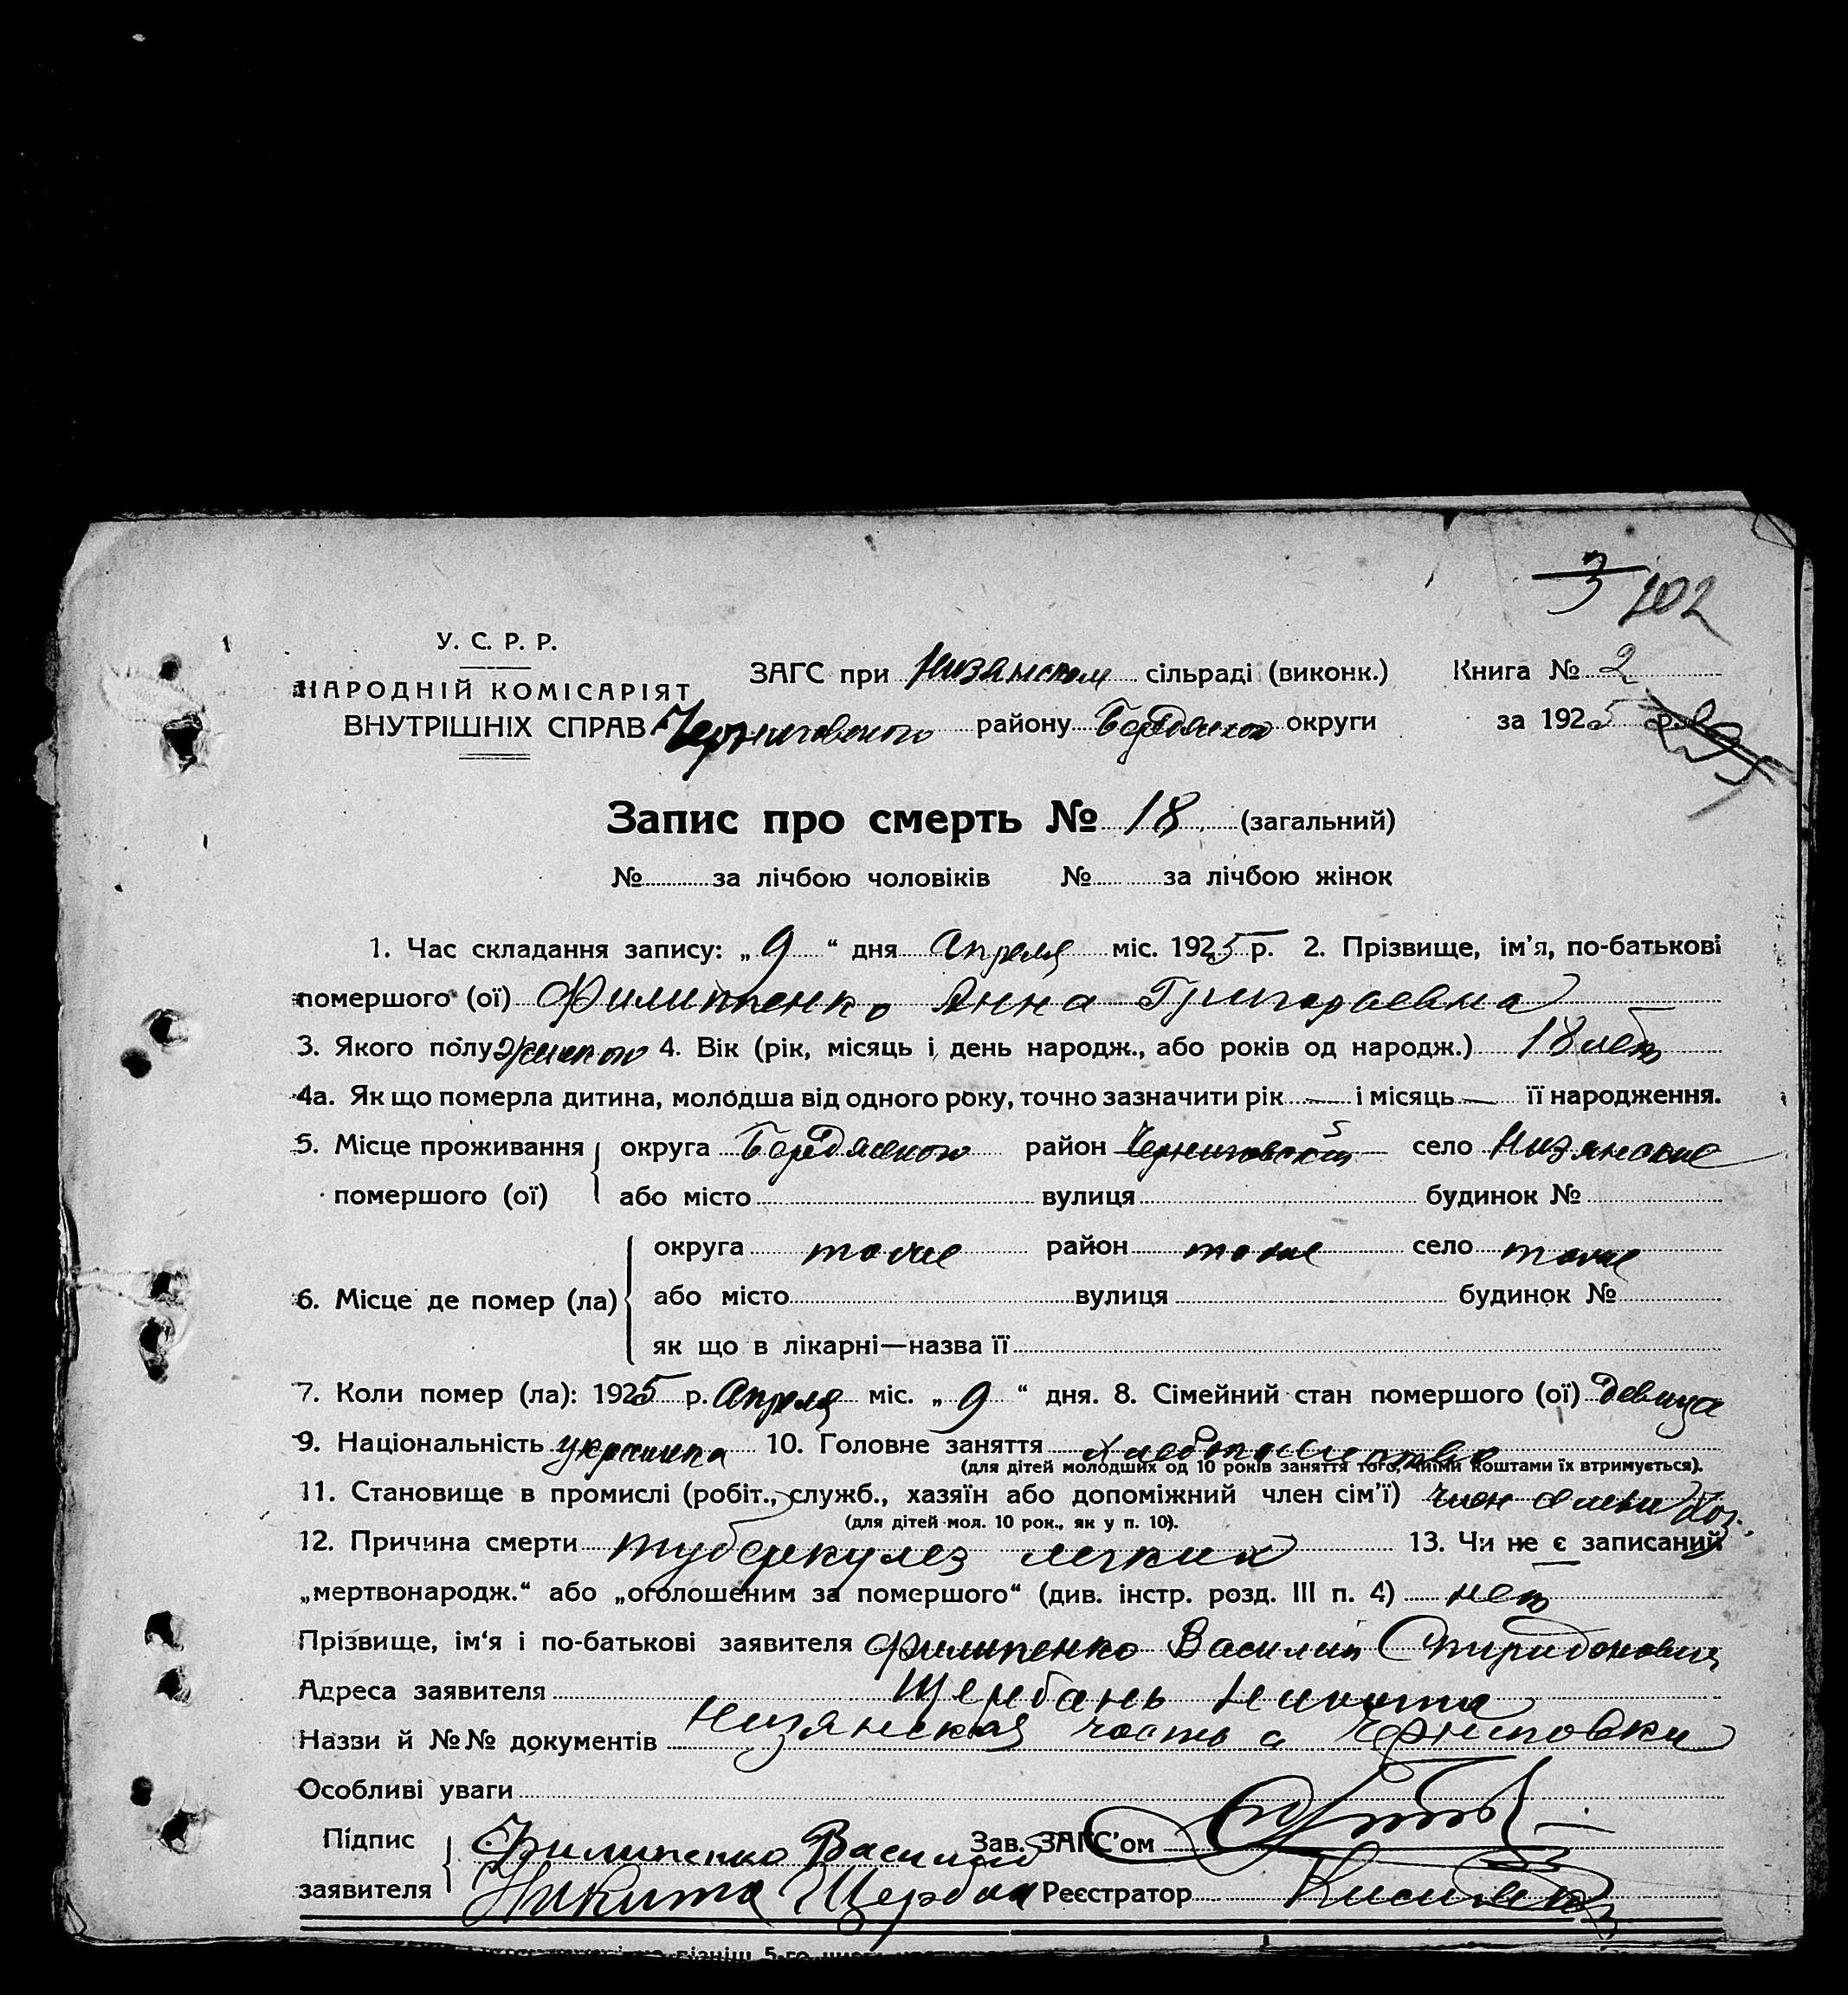 3 102
У. С. Р. Р.
НАРОДНІЙ КОМІСАРІЯТ
ВНУТРІШНІХ СПРАВ
ЗАГС при Низянском сільраді (виконк.) Книга № 2
Черниговского району Бердянской округи за 1925 р.
Запис про смерть № 18 (загальний)
№ за лічбою чоловіків № за лічбою жінок
1. Час складання запису: „ 9 “ дня Апреля міс. 1925 р. 2. Прізвище, ім'я, по-батькові
помершого (ої) Филиппенко Анна Григораевна
3. Якого полу женского 4. Вік (рік, місяць і день народж., або років од народж.) 18 лет
4а. Як що померла дитина, молодша від одного року, точно зазначити рік — і місяць — її народження.
5. Місце проживання округа Бердянского район Черниговский село Низянские
помершого (ої) або місто вулиця будинок №
округа тоже район тоже село тоже
6. Місце де помер (ла) або місто вулиця будинок №
як що в лікарні—назва її
7. Коли помер (ла): 1925 р. Апреля міс. „ 9 “ дня. 8. Сімейний стан помершого (ої) девица
9. Національність украинка 10. Головне заняття хлебопашество
(для дітей молодших од 10 років заняття того, чиїми коштами їх втримується).
11. Становище в промислі (робіт., служб., хазяїн або допоміжний член сім'ї) член семьи
(для дітей мол. 10 рок., як у п. 10).
12. Причина смерти туберкулез легких 13. Чи не є записаний
„мертвонародж.“ або „оголошеним за помершого“ (див. інстр. розд. III п. 4) нет
Прізвище, ім'я і по-батькові заявителя Филипенко Василий Спиридонович
Адреса заявителя Щербань Никита
Назви й №№ документів Низянская часть с Черниговки
Особливі уваги
Підпис Филипенко Василий Зав. ЗАГС'ом
заявителя Никита Щербан Реєстратор